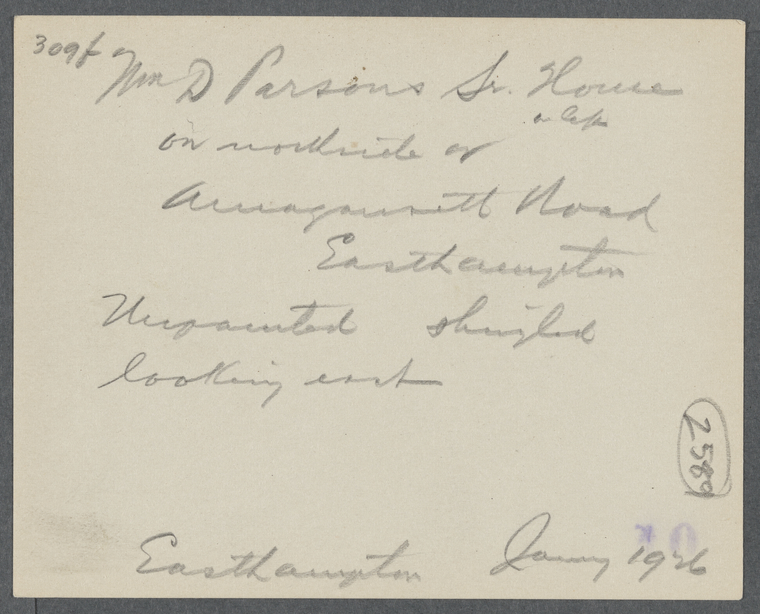 309f
Wm D Parsons Sr. House
on northside of
Amagansett Road
Easthampton
Unpainted shingled
looking east
2589
Easthampton Jany 1926